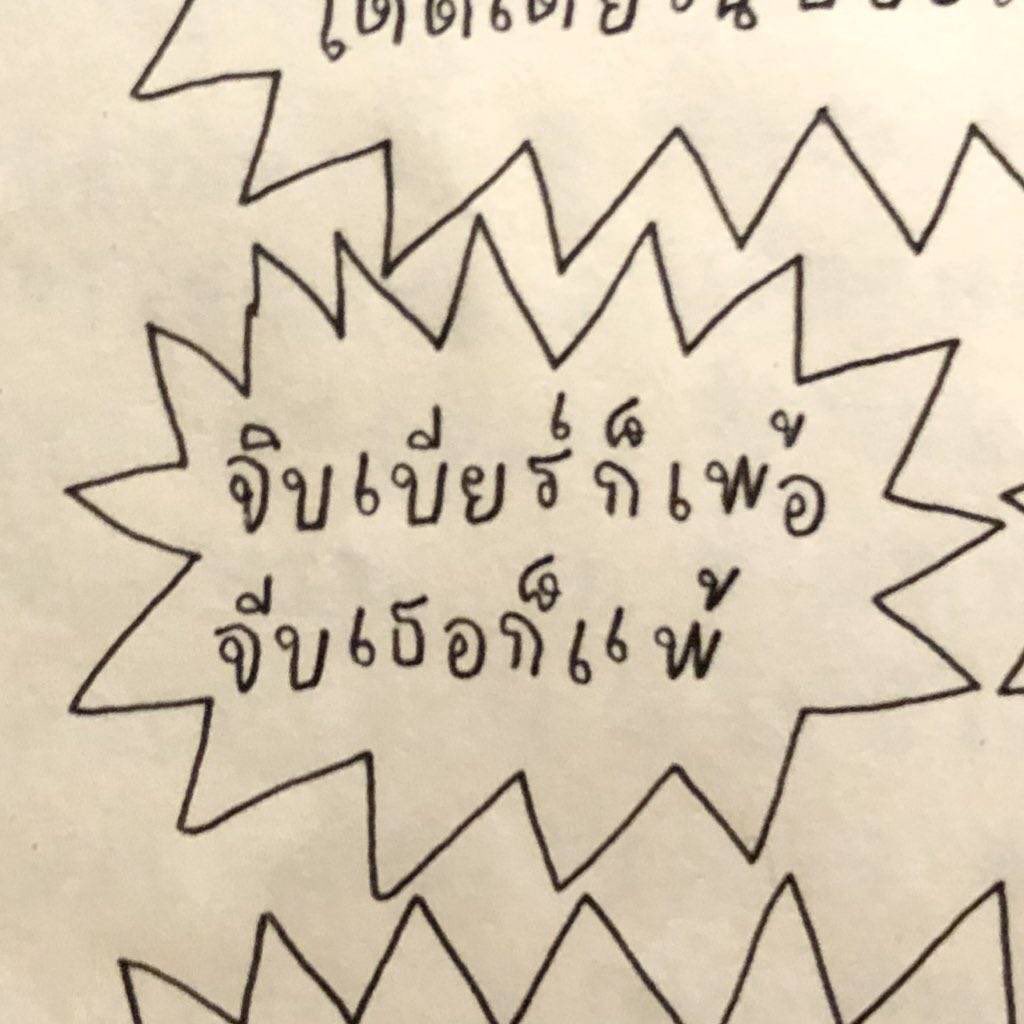 จิบเบียร์ก็เพ้อ
จีบเธอก็แพ้